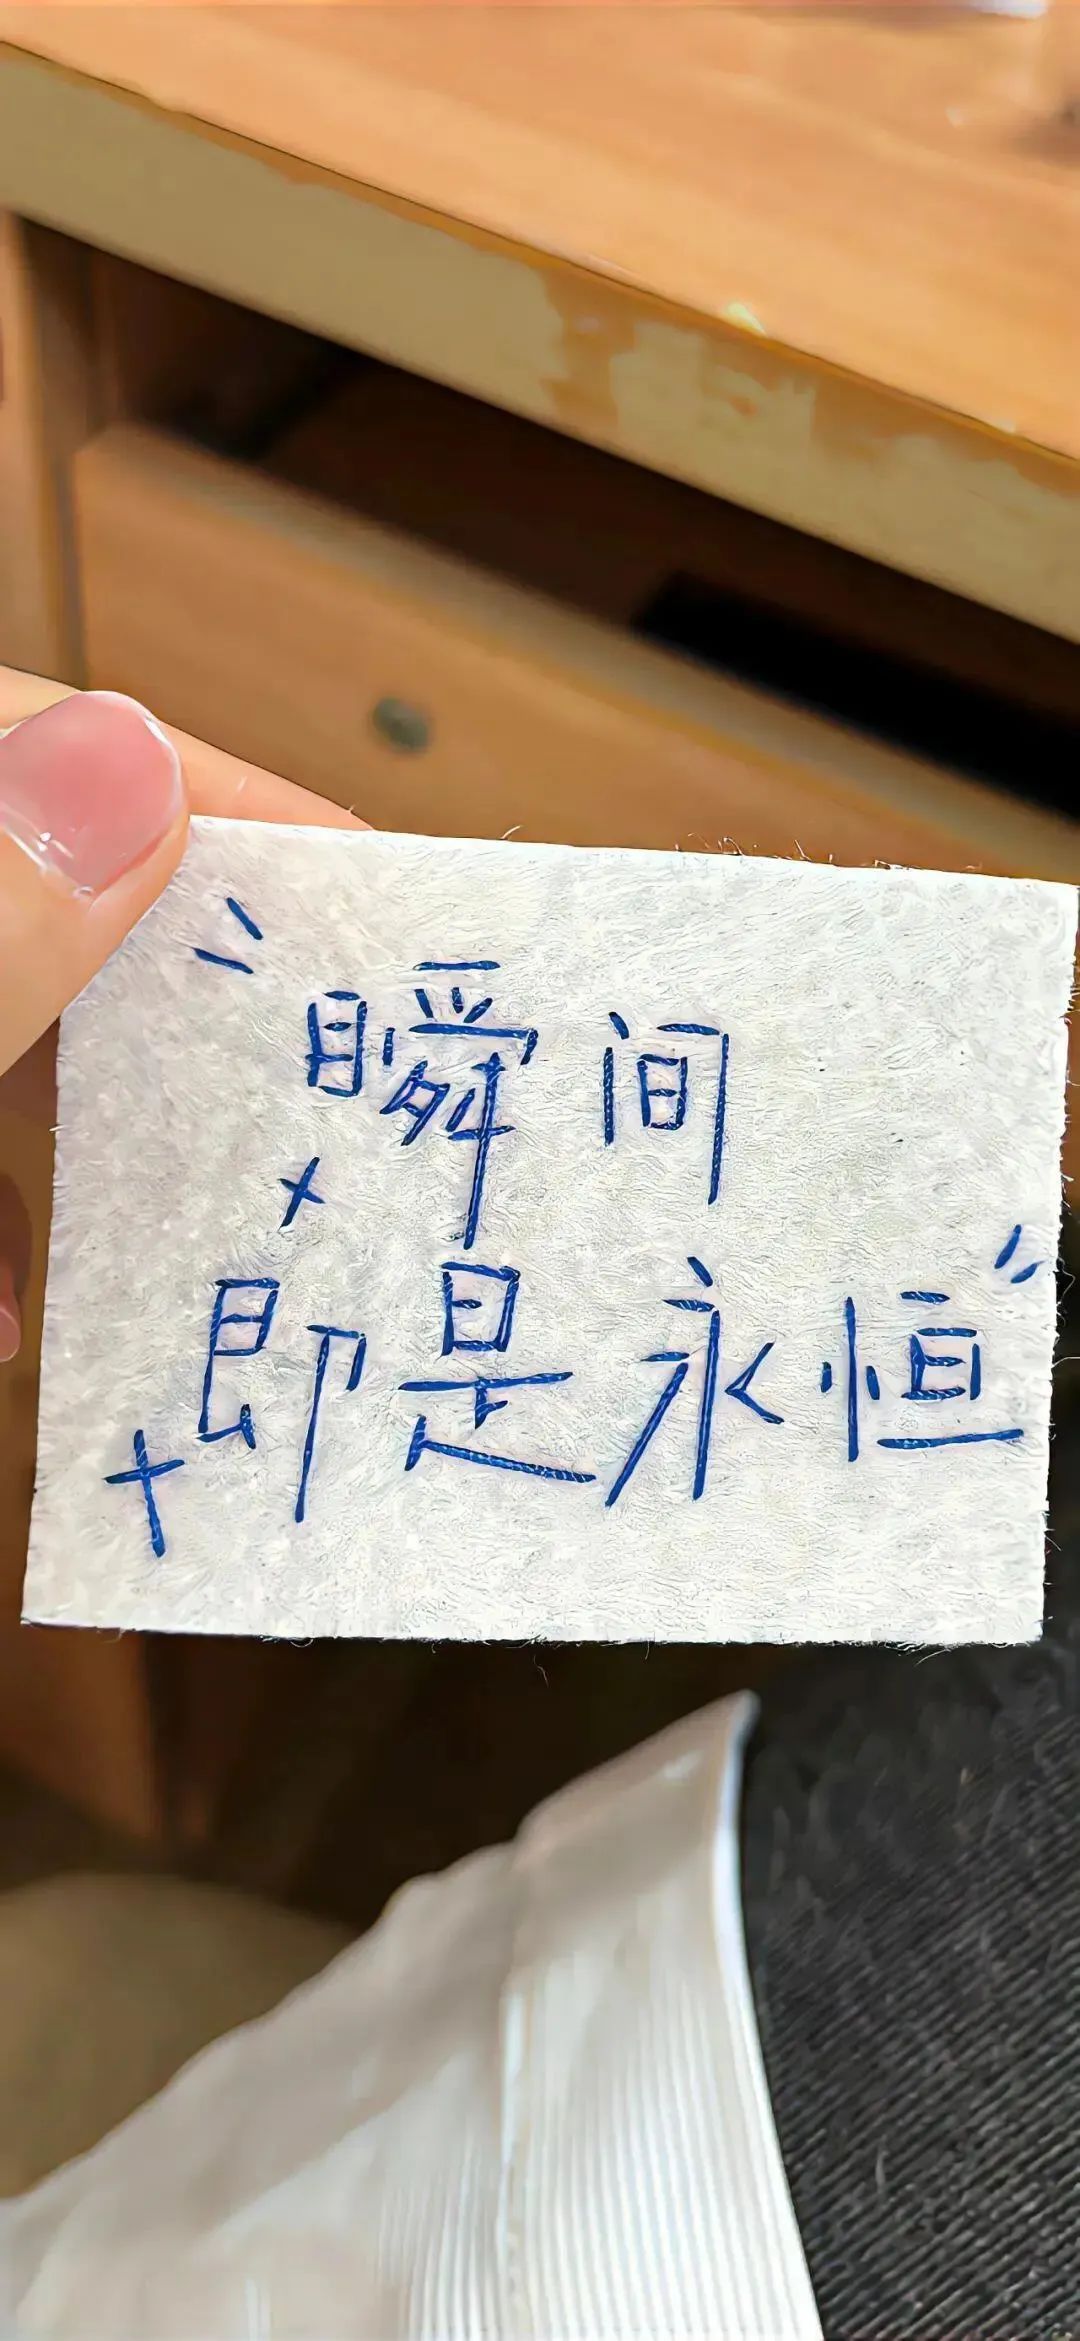 瞬间
即是永恒